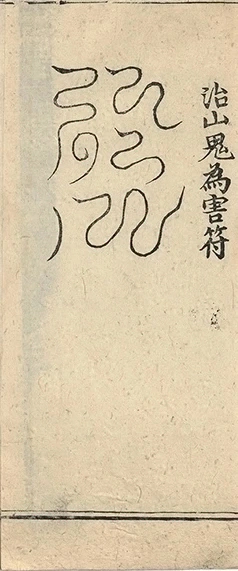 治山鬼為害符